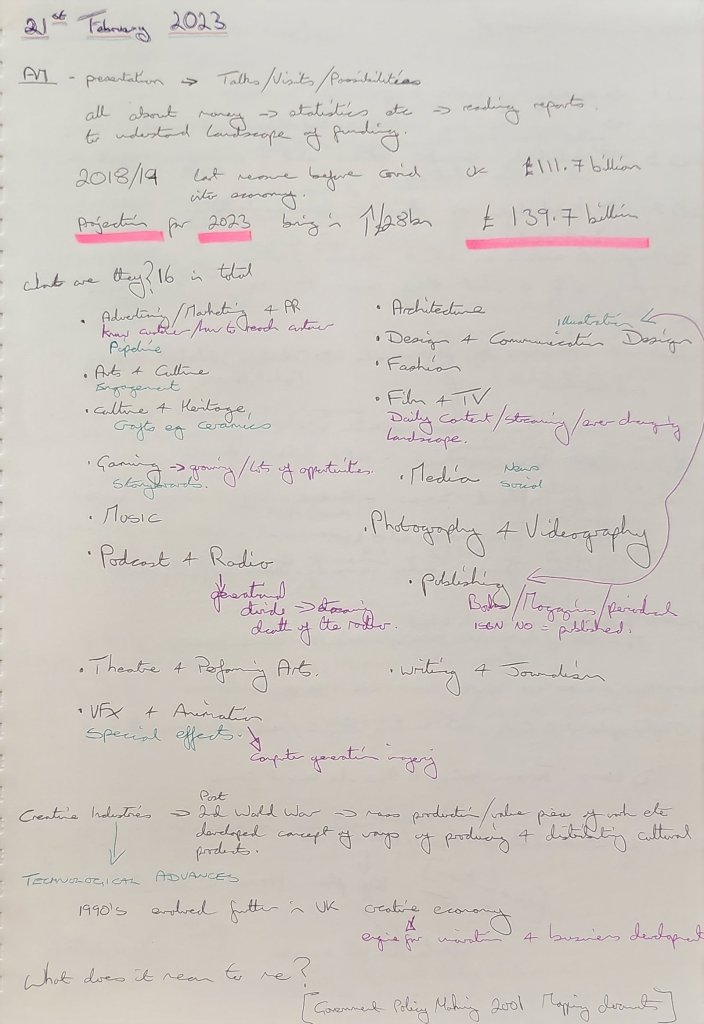 21st February 2023
AM - presentation → Talks/Visits/Possibilities
all about money → statistics etc → reading reports.
to understand landscape of funding.
2018/19 last income before covid UK £111.7 billion
into economy.
Projection for 2023 bring in ↑/28bn £139.7 billion
What are they? 16 in total
• Advertising/Marketing + PR
know customer/how to reach customer
Pipeline
• Arts + Culture
Engagement
• Culture + Heritage,
Crafts eg Ceramics
• Gaming → growing/lots of opportunities.
Storyboards.
• Music
• Podcast + Radio
generational
divide →
death of the radio.
• Theatre + Performing Arts.
• VFX + Animation
Special effects.
Computer generation imagery
• Architecture
Illustration
• Design + Communication Design
• Fashion
• Film + TV
Daily Content/Streaming/ever changing
landscape.
• Media News
Social
• Photography + Videography
• Publishing
Books/Magazines/periodical
ISBN NO = published.
• Writing + Journalism
Creative Industries → Post
2nd World War → mass production/value piece of work etc
developed concept of ways of producing + distributing cultural
products.
TECHNOLOGICAL ADVANCES
1990's evolved further in UK creative economy
engine for innovation + business development
What does it mean to me?
[Government Policy Making 2001 Mapping documents]